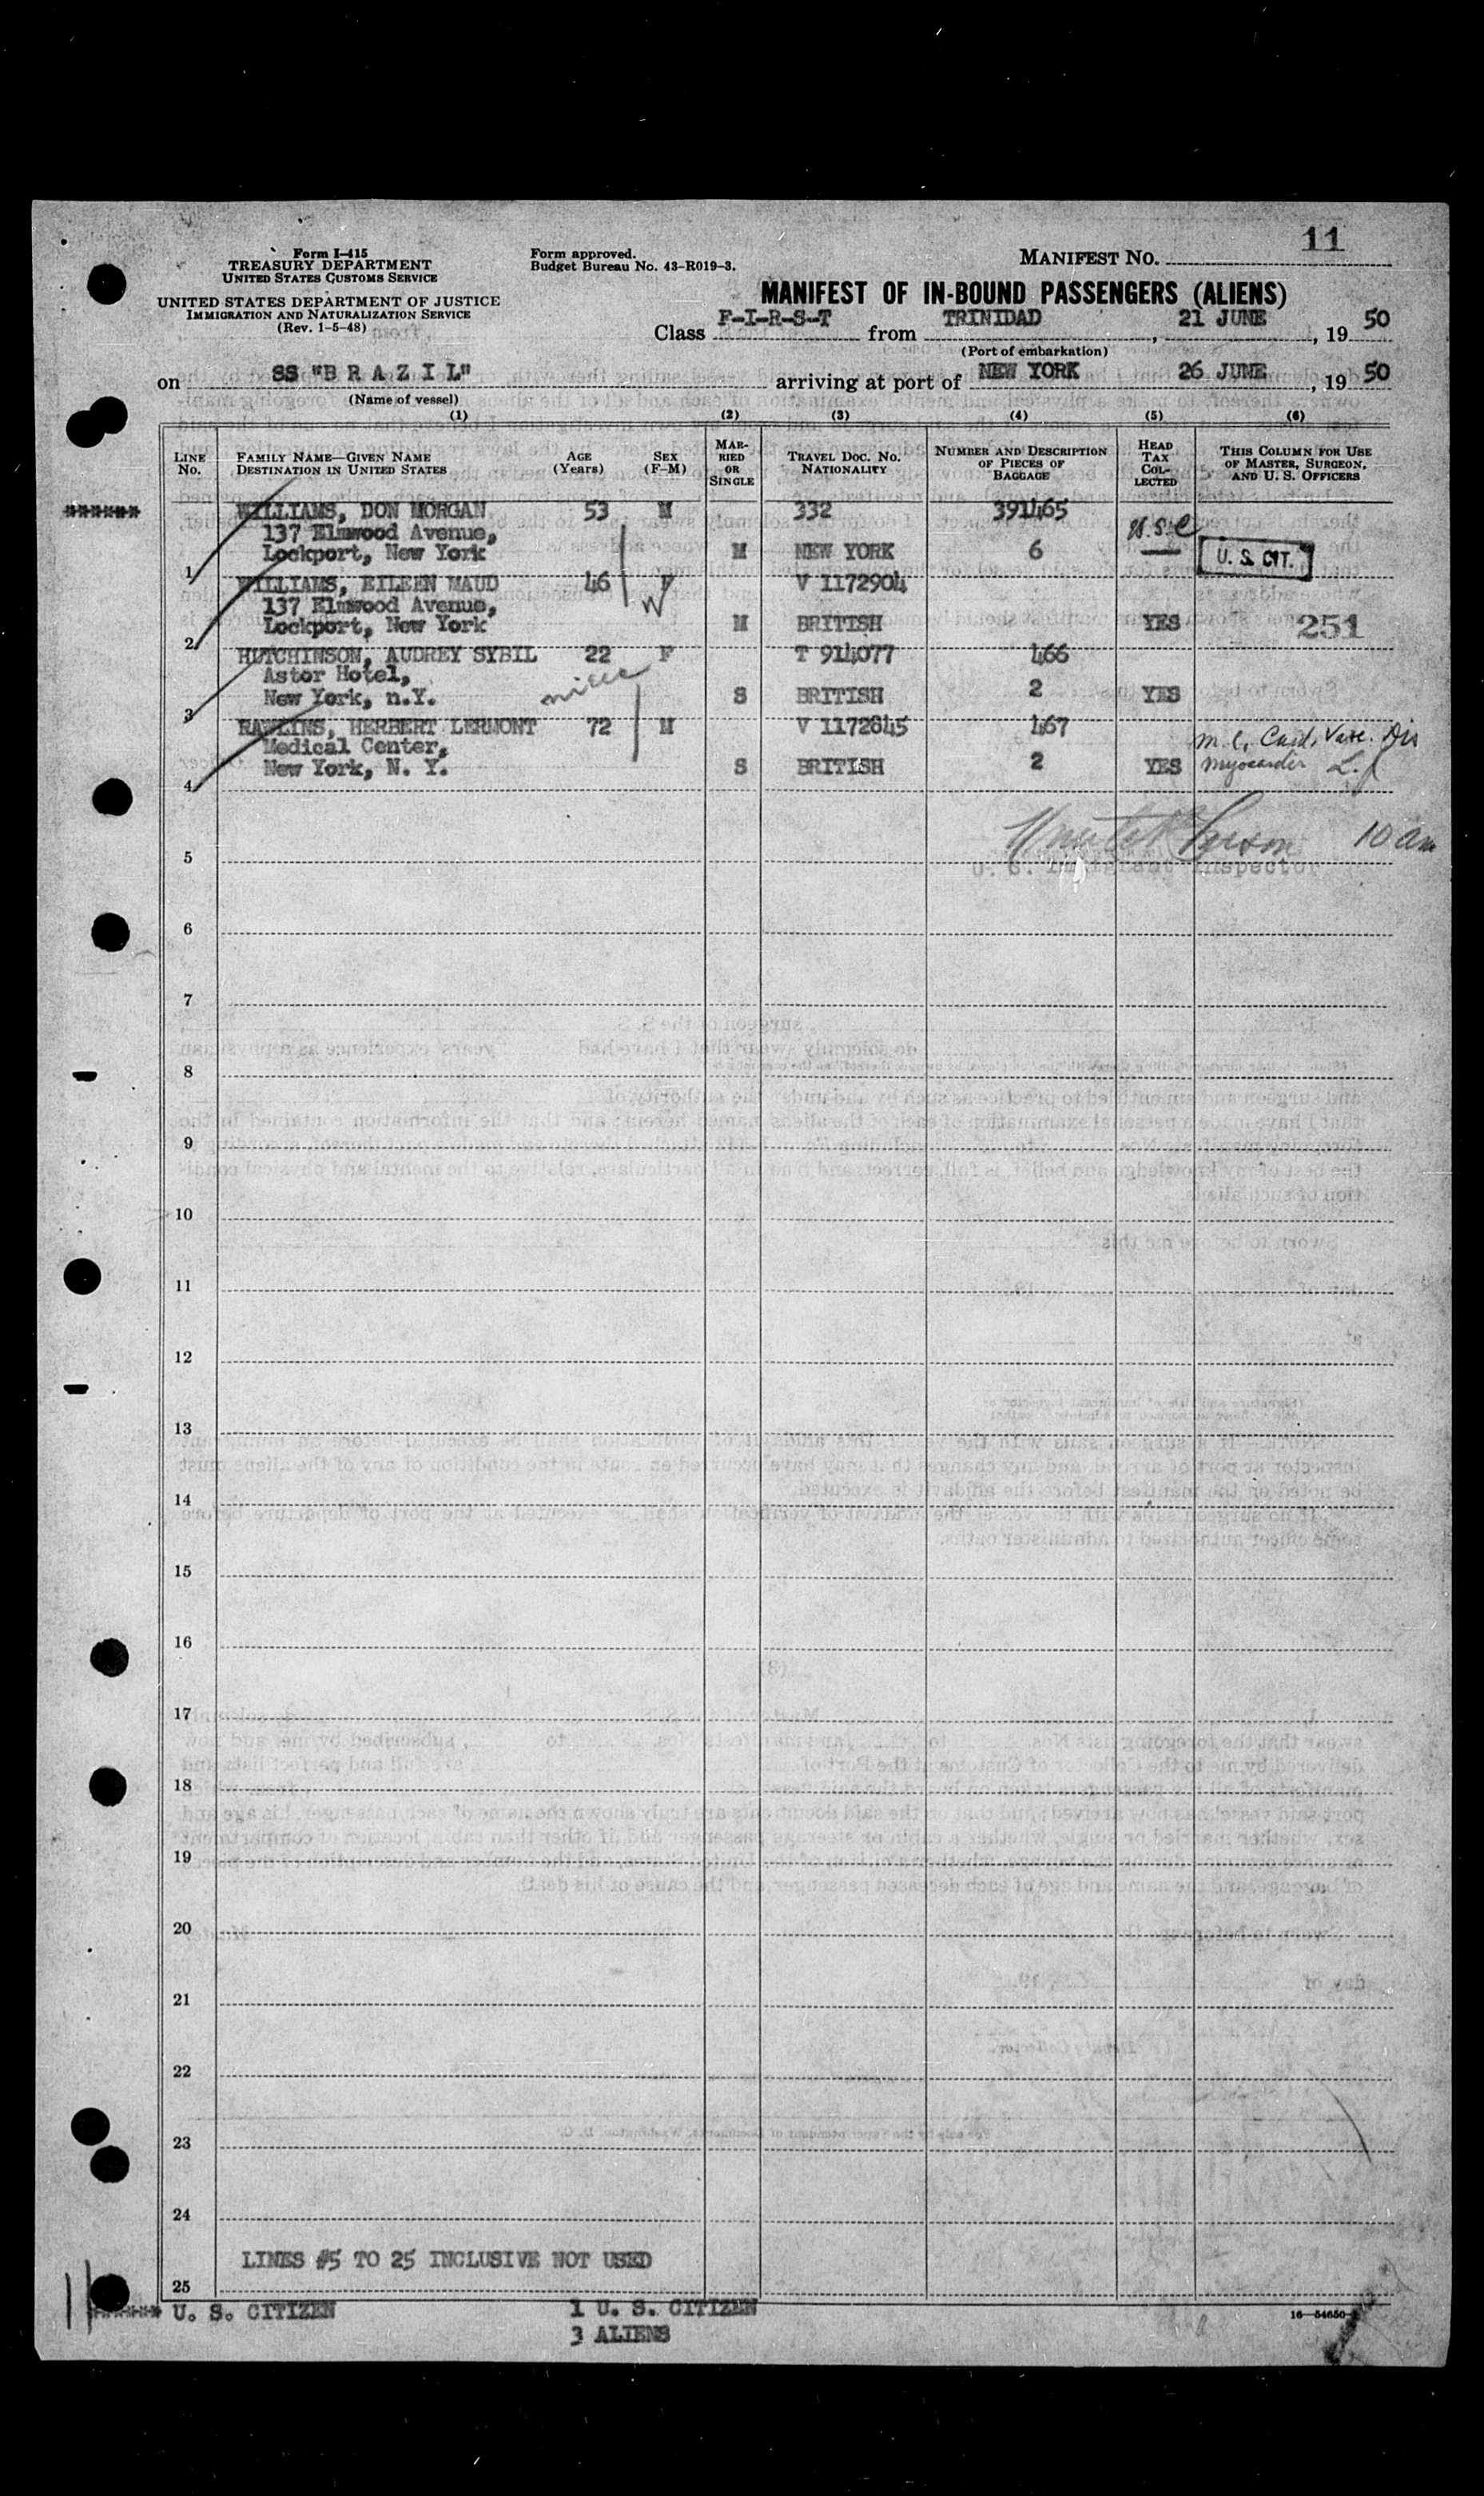 11
Form I-415
TREASURY DEPARTMENT
UNITED STATES CUSTOMS SERVICE
UNITED STATES DEPARTMENT OF JUSTICE
IMMIGRATION AND NATURALIZATION SERVICE
(Rev. 1-5-48)
Form approved.
Budget Bureau No. 43-R019-3.
MANIFEST NO.
MANIFEST OF IN-BOUND PASSENGERS (ALIENS)
Class F-I-R-S-T from TRINIDAD, 21 JUNE, 1950
(Port of embarkation)
on SS "B R A Z I L" arriving at port of NEW YORK 26 JUNE, 1950
(Name of vessel)
(1) (2) (3) (4) (5) (6)
LINE No.
FAMILY NAME—GIVEN NAME
DESTINATION IN UNITED STATES
AGE (Years)
SEX (F-M)
MAR-RIED OR SINGLE
TRAVEL DOC. NO. NATIONALITY
NUMBER AND DESCRIPTION OF PIECES OF BAGGAGE
HEAD TAX COL-LECTED
THIS COLUMN FOR USE OF MASTER, SURGEON, AND U. S. OFFICERS
****** WILLIAMS, DON MORGAN 53 M 332 391465
137 Elmwood Avenue, U.S.C
Lockport, New York M NEW YORK 6 U. S. CIT.
1
WILLIAMS, EILEEN MAUD 46 F V 1172904
137 Elmwood Avenue, W
Lockport, New York M BRITISH YES 251
2
HUTCHINSON, AUDREY SYBIL 22 F T 914077 466
Astor Hotel, niece
New York, n.Y. S BRITISH 2 YES
3
RAWLINS, HERBERT LERMONT 72 M V 1172845 467
Medical Center, m.c. Card. Vasc. Dis
New York, N. Y. S BRITISH 2 YES myocarder
4
10 am
5
U. S. Immigrant Inspector
6
7
8
9
10
11
12
13
14
15
16
17
18
19
20
21
22
23
24
LINES #5 TO 25 INCLUSIVE NOT USED
25
****** U. S. CITIZEN 1 U. S. CITIZEN
3 ALIENS
16—54650-1